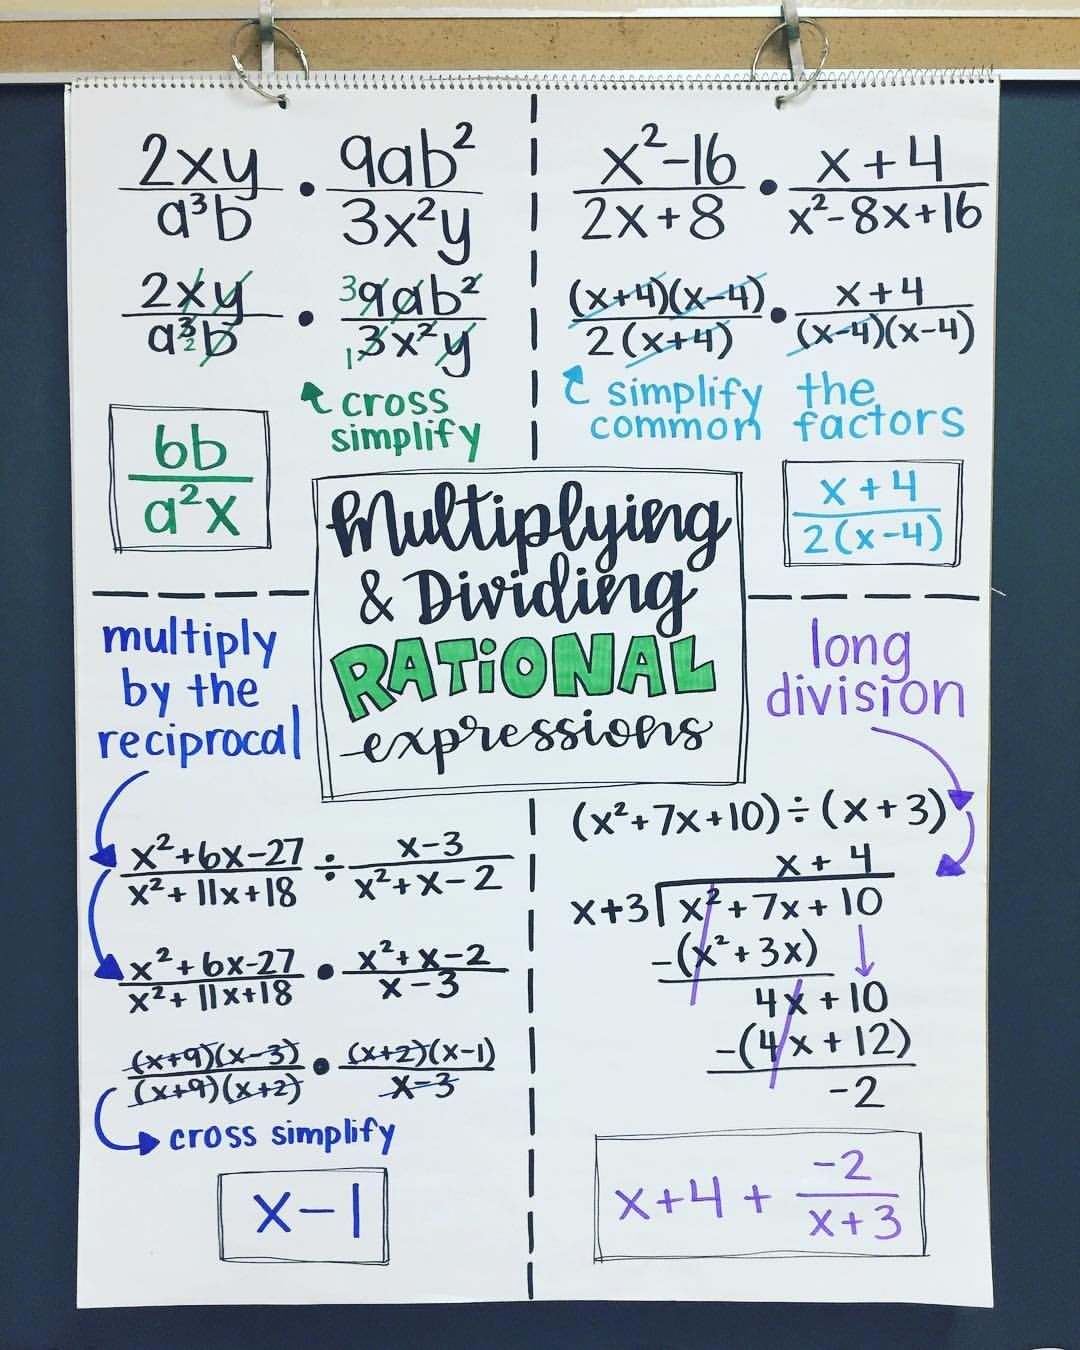 2xy/a³b • 9ab²/3x²y
2xy/a³2b • 39ab²/13x²y
cross
simplify
6b/a²x
x²-16/2x+8 • x+4/x²-8x+16
(x+4)(x-4)/2(x+4) • x+4/(x-4)(x-4)
simplify the
common factors
x+4/2(x-4)
Multiplying
& Dividing
RATiONAL
expressions
multiply
by the
reciprocal
x²+6x-27/x²+11x+18 ÷ x-3/x²+x-2
x²+6x-27/x²+11x+18 • x²+x-2/x-3
(x+9)(x-3)/(x+9)(x+2) • (x+2)(x-1)/x-3
cross simplify
x-1
long
division
(x²+7x+10)÷(x+3)
x+4
x+3 x²+7x+10
-(x²+3x)
4x+10
-(4x+12)
-2
x+4+ -2/x+3